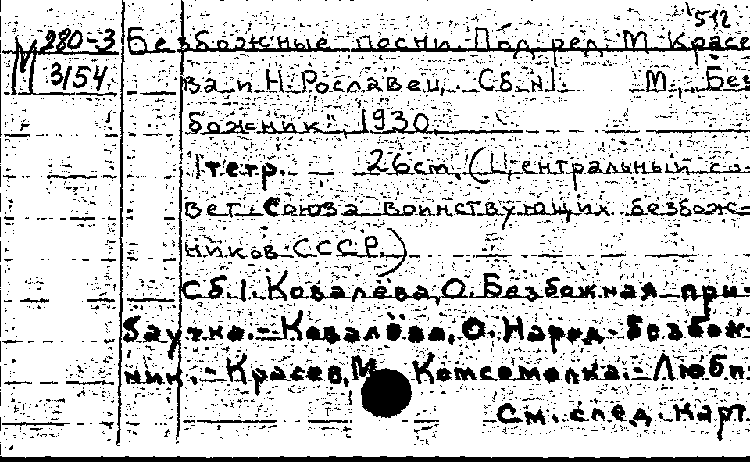 512
М 280-3 Безбожные песни. Под ред. М. Красе-
3/54 ва и Н. Рославец. Сб. №1. М., „Без-
божник", 1930.
1 тетр. 26 см. (Центральный со-
вет Союза воинствующих безбож-
ников СССР.)
Сб.1. Ковалёва, О. Безбожная при-
баутка. - Ковалёва, О. Народ-безбож-
ник. - Красев, М. Комсомолка. - Люби
См. след. карт.